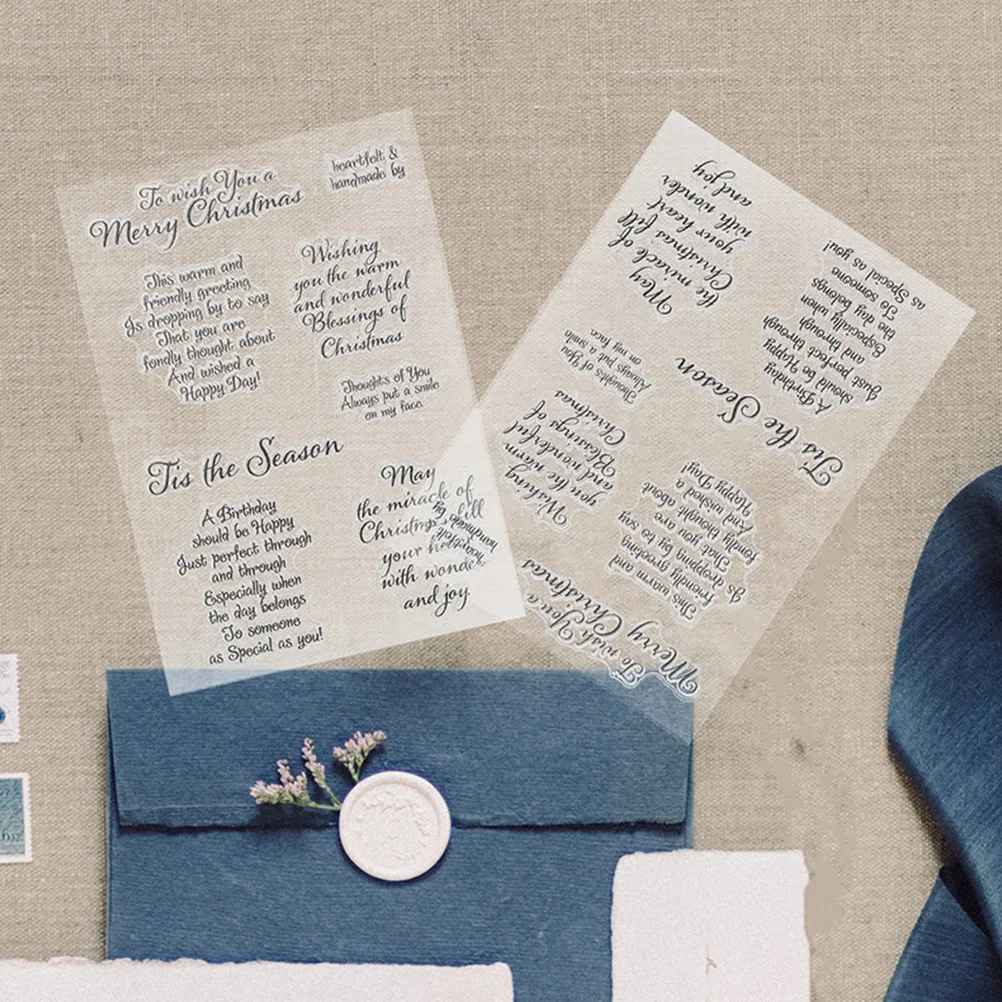 To wish You a
Merry Christmas
heartfelt &
handmade by
This warm and
friendly greeting
Is dropping by to say
That you are
fondly thought about
And wished a
Happy Day!
Wishing
you the warm
and wonderful
Blessings of
Christmas
Thoughts of You
Always put a smile
on my face.
Tis the Season
A Birthday
should be Happy
Just perfect through
and through
Especially when
the day belongs
To someone
as Special as you!
May
the miracle of
Christmas fill
your heart
with wonder
and joy
To wish You a
Merry Christmas
heartfelt &
handmade by
This warm and
friendly greeting
Is dropping by to say
That you are
fondly thought about
And wished a
Happy Day!
Wishing
you the warm
and wonderful
Blessings of
Christmas
Thoughts of You
Always put a smile
on my face
Tis the Season
A Birthday
should be Happy
Just perfect through
and through
Especially when
the day belongs
To someone
as Special as you!
May
the miracle of
Christmas fill
your heart
with wonder
and joy